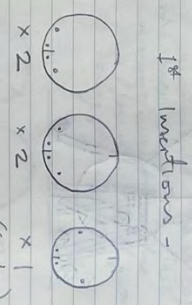 1st Insertions -
x 2
x 2
x 1